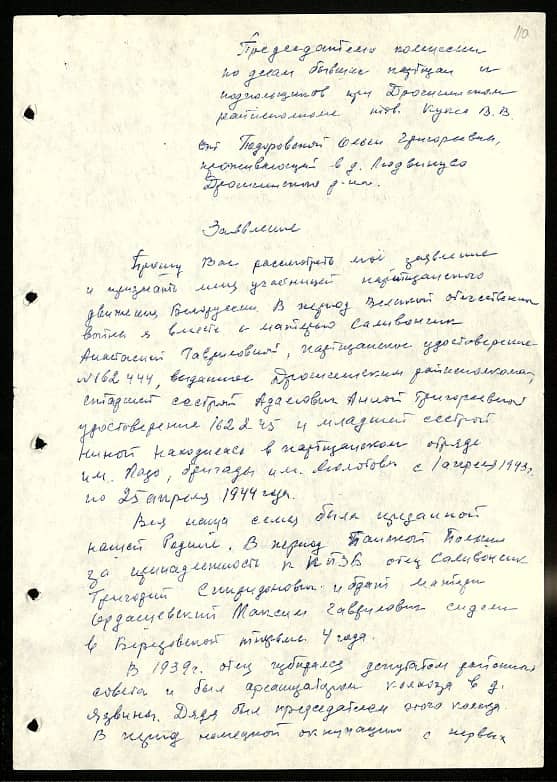 110
Председателю комиссии
по делам бывших партизан и
подпольщиков при Дрогичинском
райисполкоме тов. Куксе В.В.
от Подоровской Ольги Григорьевны,
проживающей в д. Людвиново
Дрогичинского р-на.
Заявление
Прошу Вас рассмотреть моё заявление
и признать меня участницей партизанского
движения Белоруссии. В период Великой отечественной
войны я вместе с матерью Саливончик
Анастасией Гавриловной, партизанское удостоверение
№ 162444, выданное Дрогичинским райисполкомом,
старшей сестрой Адамович Анной Григорьевной
удостоверение 162245 и младшей сестрой
Ниной находилась в партизанском отряде
им. Лазо, бригады им. Молотова с 1 апреля 1943г.
по 25 апреля 1944 года.
Вся наша семья была преданной
нашей Родине. В период Панской Польши
за принадлежность к КПЗБ отец Саливончик
Григорий Спиридонович и брат матери
Максим Гаврилович сидели
в Березовской тюрьме 4 года.
В 1939 г. отец избирался депутатом районного
совета и был организатором колхоза в д.
Язвины. Дядя был председателем этого колхоза.
В период немецкой оккупации с первых